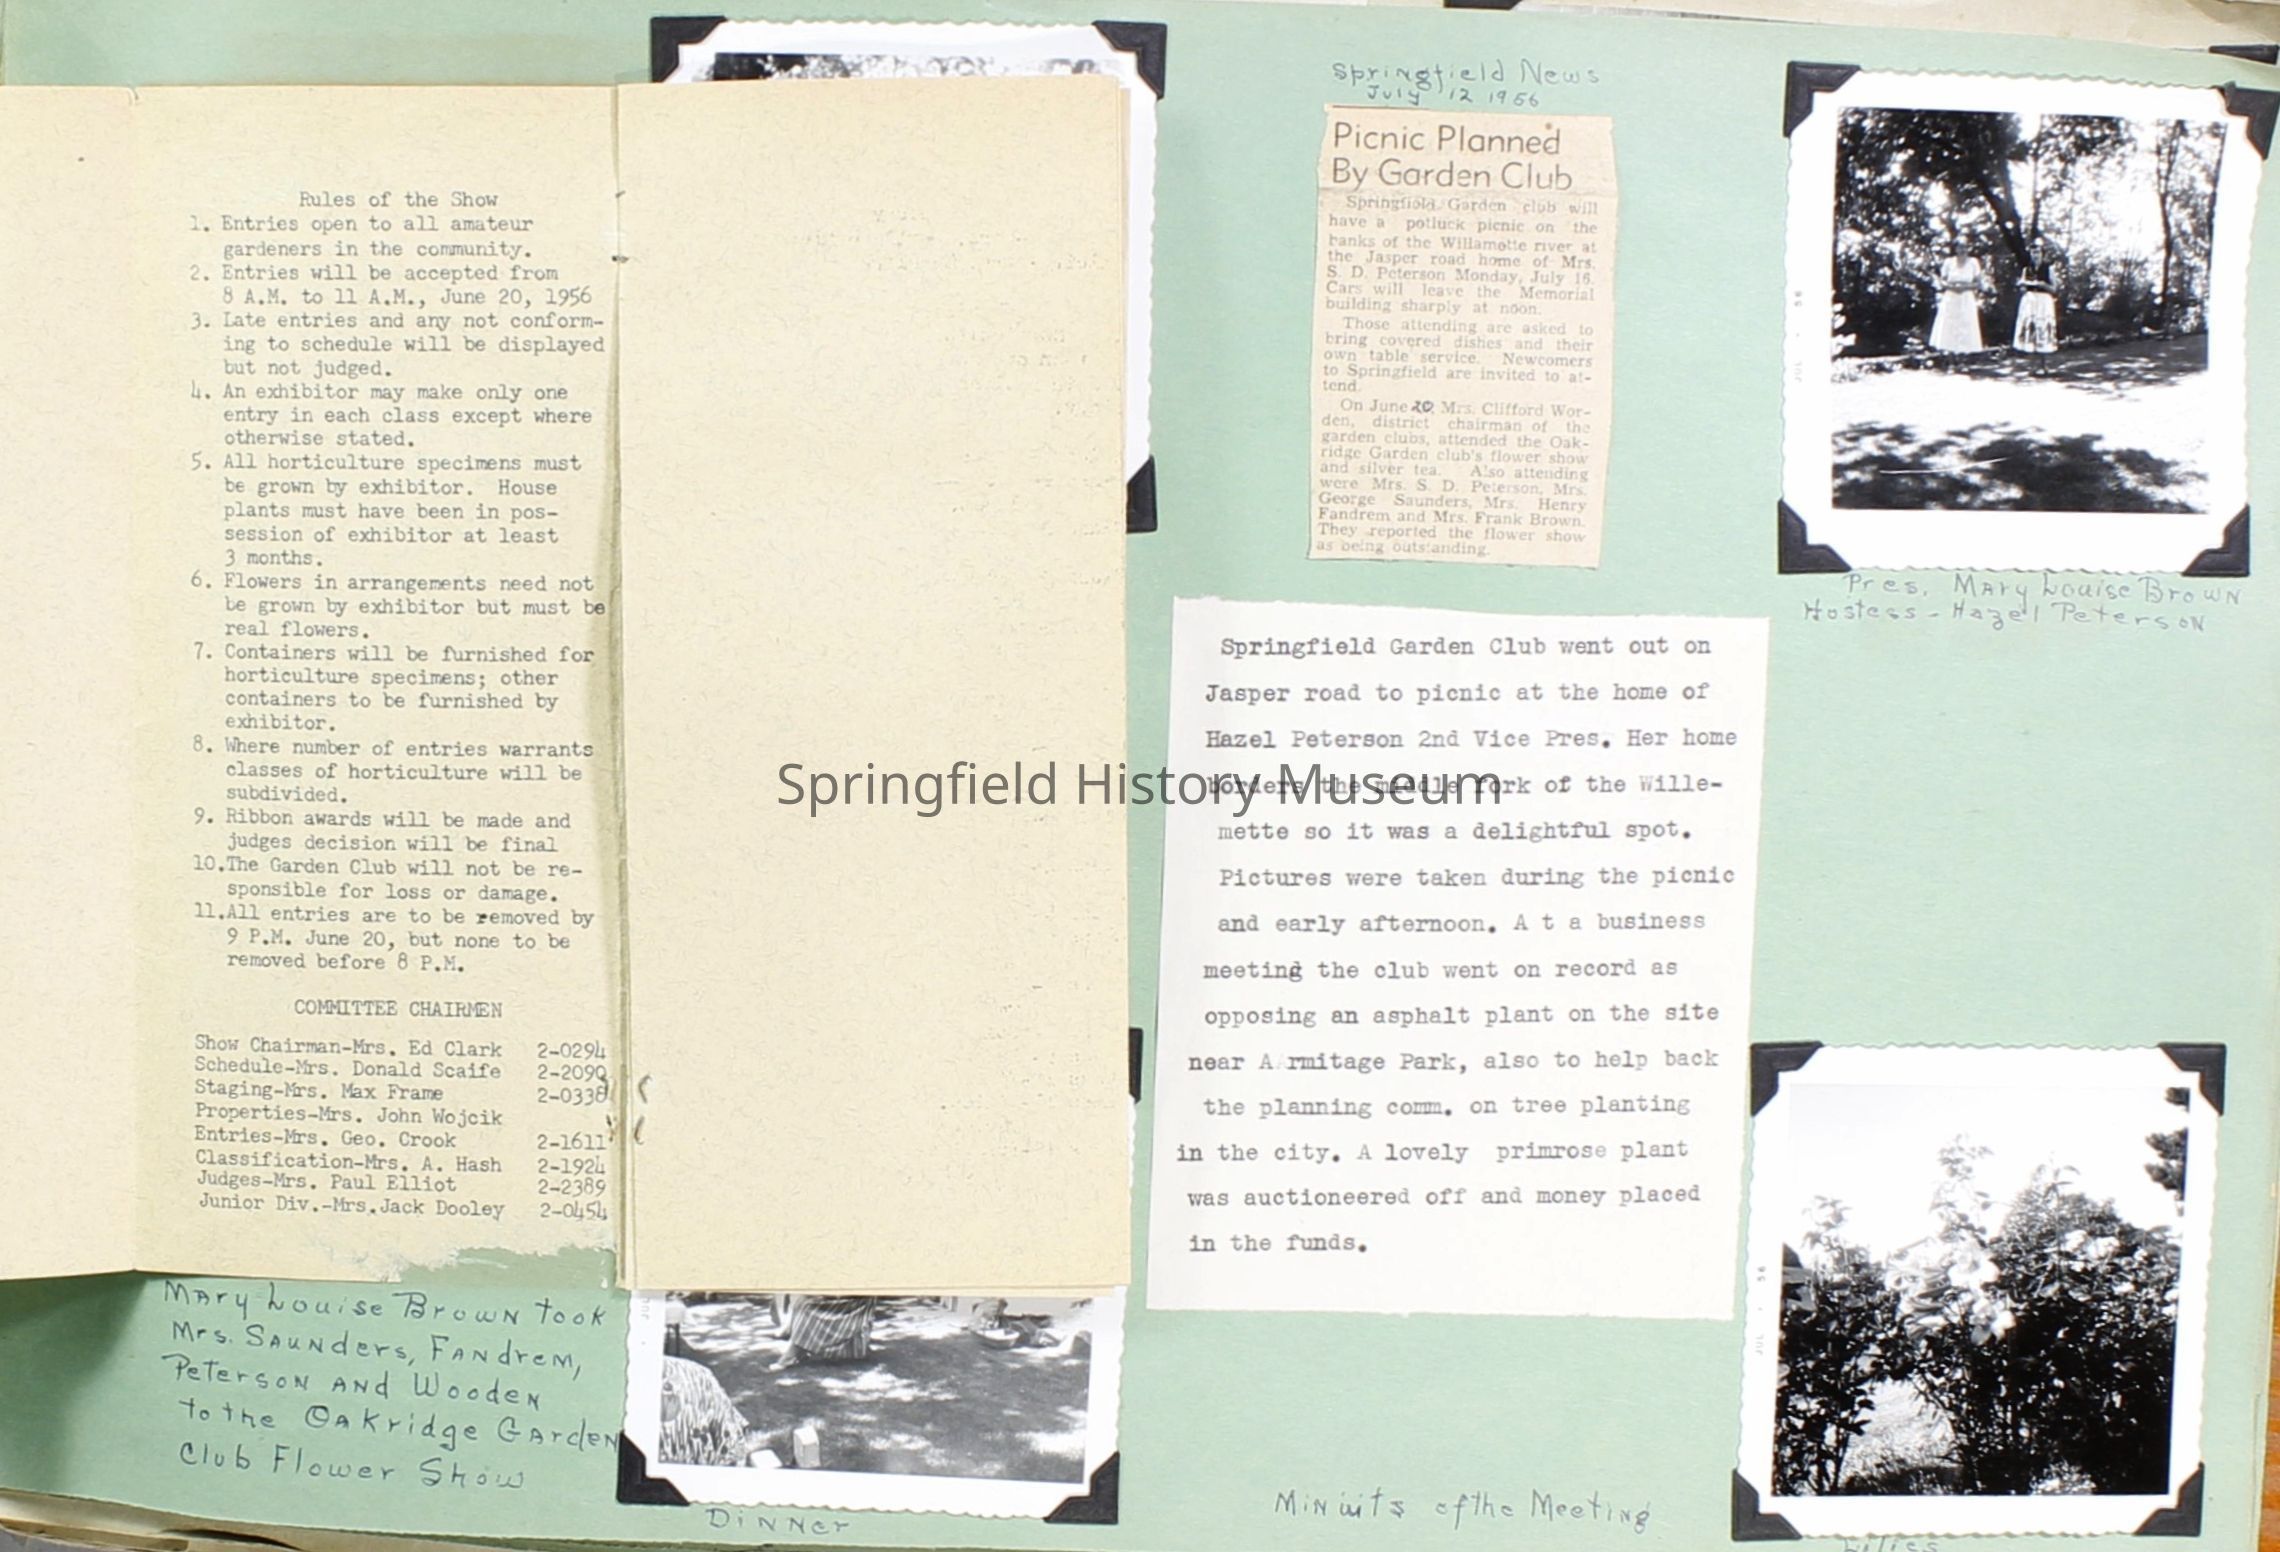 Rules of the Show
1. Entries open to all amateur
gardeners in the community.
2. Entries will be accepted from
8 A.M. to 11 A.M., June 20, 1956
3. Late entries and any not conform-
ing to schedule will be displayed
but not judged.
4. An exhibitor may make only one
entry in each class except where
otherwise stated.
5. All horticulture specimens must
be grown by exhibitor. House
plants must have been in pos-
session of exhibitor at least
3 months.
6. Flowers in arrangements need not
be grown by exhibitor but must be
real flowers.
7. Containers will be furnished for
horticulture specimens; other
containers to be furnished by
exhibitor.
8. Where number of entries warrants
classes of horticulture will be
subdivided.
9. Ribbon awards will be made and
judges decision will be final
10.The Garden Club will not be re-
sponsible for loss or damage.
11.All entries are to be removed by
9 P.M. June 20, but none to be
removed before 8 P.M.
COMMITTEE CHAIRMEN
Show Chairman-Mrs. Ed Clark 2-0294
Schedule-Mrs. Donald Scaife 2-2090
Staging-Mrs. Max Frame 2-0338
Properties-Mrs. John Wojcik
Entries-Mrs. Geo. Crook 2-1611
Classification-Mrs. A. Hash 2-1924
Judges-Mrs. Paul Elliot 2-2389
Junior Div.-Mrs.Jack Dooley 2-0454
Mary Louise Brown took
Mrs. Saunders, Fandrem,
Peterson and Wooden
to the Oakridge Garden
Club Flower Show
Dinner
Springfield News
July 12 1956
Picnic Planned
By Garden Club
Springfield Garden club will
have a potluck picnic on the
banks of the Willamette river at
the Jasper road home of Mrs.
S. D. Peterson Monday, July 16.
Cars will leave the Memorial
building sharply at noon.
Those attending are asked to
bring covered dishes and their
own table service. Newcomers
to Springfield are invited to at-
tend.
On June 20, Mrs. Clifford Wor-
den, district chairman of the
garden clubs, attended the Oak-
ridge Garden club's flower show
and silver tea. Also attending
were Mrs. S. D. Peterson, Mrs.
George Saunders, Mrs. Henry
Fandrem and Mrs. Frank Brown.
They reported the flower show
as being outstanding.
Springfield Garden Club went out on
Jasper road to picnic at the home of
Hazel Peterson 2nd Vice Pres. Her home
borders the middle fork of the Wille-
mette so it was a delightful spot.
Pictures were taken during the picnic
and early afternoon. A t a business
meeting the club went on record as
opposing an asphalt plant on the site
near A rmitage Park, also to help back
the planning comm. on tree planting
in the city. A lovely primrose plant
was auctioneered off and money placed
in the funds.
Minuits of the Meeting
JUL • 56
Pres. Mary Louise Brown
Hostess - Hazel Peterson
JUL • 56
Lilies
Springfield History Museum